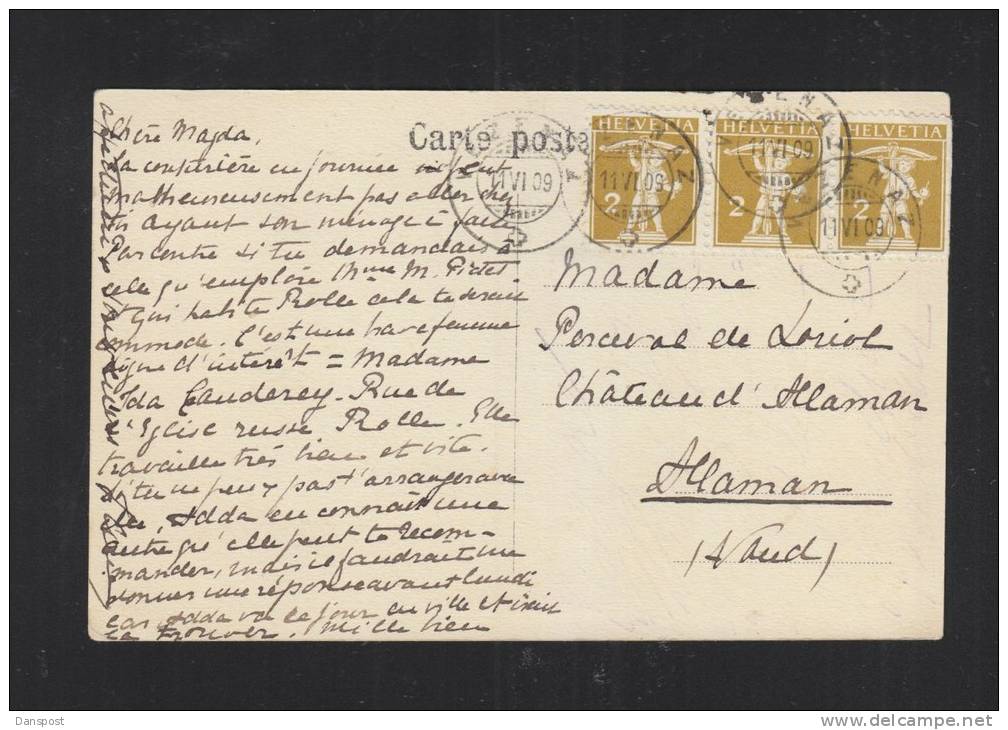 Carte posta
HELVETIA HELVETIA HELVETIA
2 2 2
11 VI 09
11 VI 09
11 VI 09
11 VI 09
Chère Magda,
La couturière en journée
malheureusement pas aller chez
toi ayant son ménage à faire
Par contre si tu demandais à
celle qu'emploie Mme M. Pictet
qui habite Rolle cela te serait
commode. C'est une brave femme
digne d'intérêt = Madame
Ida Cauderey - Rue de
l'Eglise russe Rolle. Elle
travaille très bien et vite.
Si tu ne peux pas t'arranger avec
elle, Adda en connaît une
autre qu'elle peut te recom-
mander, mais il faudrait me
donner une réponse avant lundi
car Adda va ce jour en ville et irait
la trouver. Mille bien
Madame
Perceval de Loriol
Château d'Allaman
Allaman
(Vaud)
Danspost
www.delcampe.net